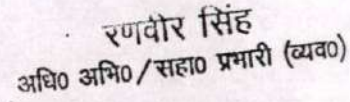 रणवीर सिंह
अधि0 अभि0/सहा0 प्रभारी (व्यव0)